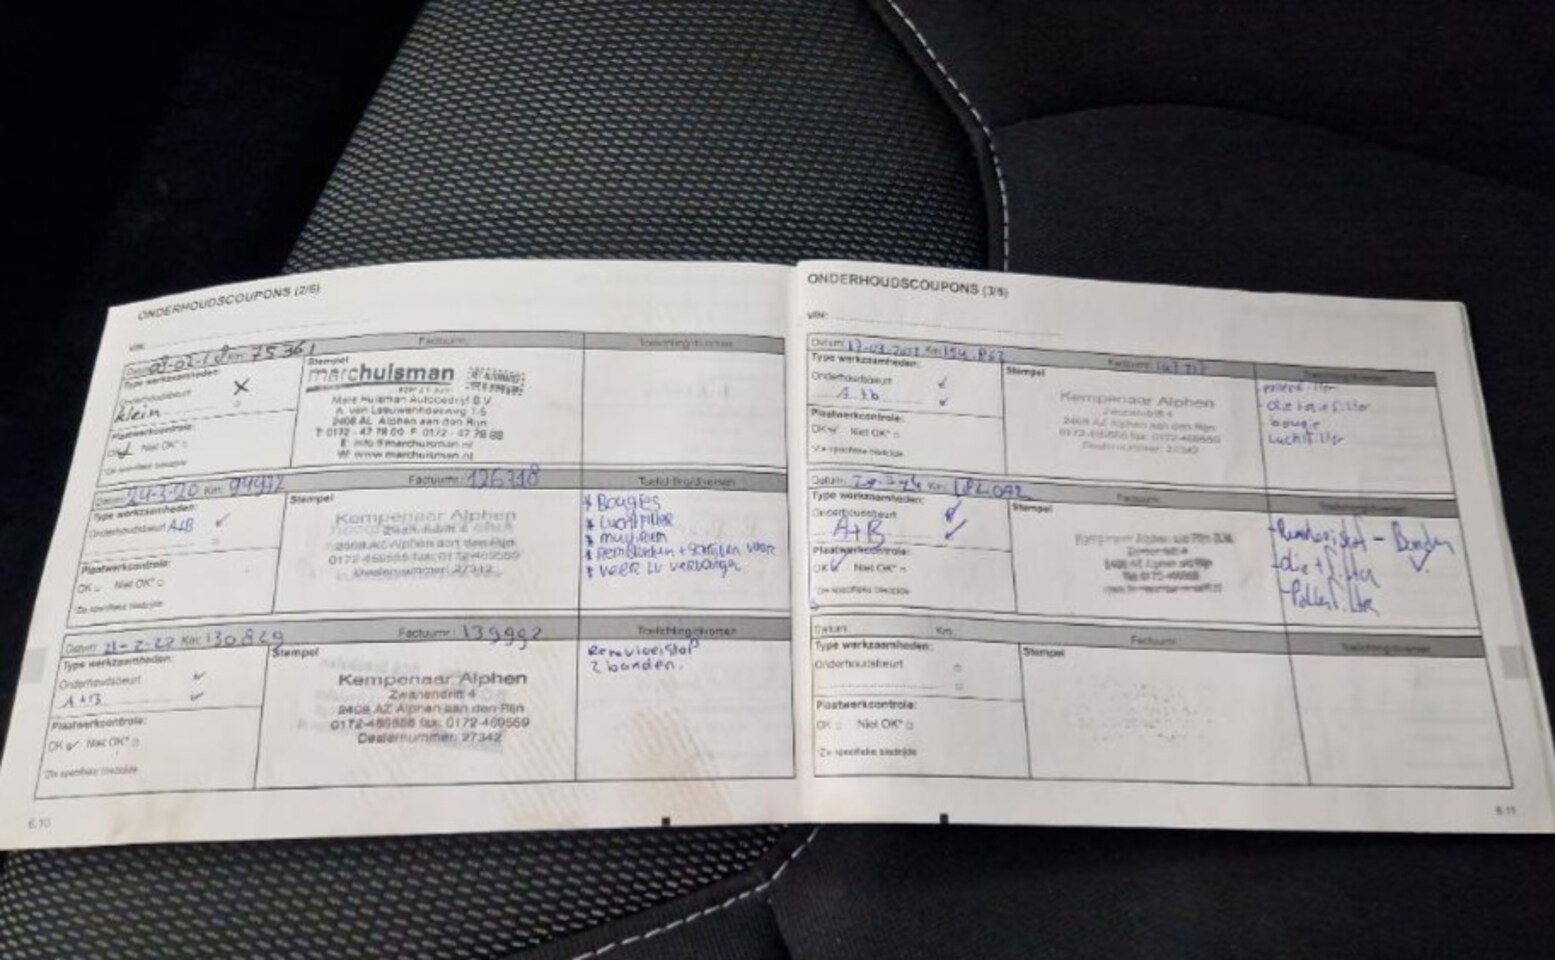 ONDERHOUDSCOUPONS (2/6)
VIN:
Datum: 09-02-18 Km: 75361
Factuurnr.:
Toelichting/diversen
Type werkzaamheden:
Onderhoudsbeurt
klein
Plaatwerkcontrole:
OK Niet OK*
*Zie specifieke bladzijde
Stempel
marchuisman
Marc Huisman Autobedrijf B.V.
A. van Leeuwenhoekweg 1-5
2408 AL Alphen aan den Rijn
T 0172 - 47 78 00 F 0172 - 47 78 88
E info@marchuisman.nl
W www.marchuisman.nl
Datum: 24-3-20 Km: 94972
Factuurnr.: 126318
Toelichting/diversen
Type werkzaamheden:
Onderhoudsbeurt A+B
Plaatwerkcontrole:
OK Niet OK*
*Zie specifieke bladzijde
Stempel
Kempenaar Alphen
2408 AZ Alphen aan den Rijn
0172-469555 fax: 0172-469559
Dealernummer: 27342
* Bougies
* Luchtfilter
* Remblokken + schijven voor
* Veer LV vervangen
Datum: 21-2-22 Km: 130.829
Factuurnr.: 139992
Toelichting/diversen
Type werkzaamheden:
Onderhoudsbeurt
A+B
Plaatwerkcontrole:
OK Niet OK*
*Zie specifieke bladzijde
Stempel
Kempenaar Alphen
Zwanendrift 4
2408 AZ Alphen aan den Rijn
0172-469555 fax: 0172-469559
Dealernummer: 27342
Remvloeistof
2 banden.
6.10
ONDERHOUDSCOUPONS (3/6)
VIN:
Datum: Km:
Factuurnr.:
Toelichting/diversen
Type werkzaamheden:
Onderhoudsbeurt
Plaatwerkcontrole:
OK Niet OK*
*Zie specifieke bladzijde
Stempel
Kempenaar Alphen
Zwanendrift 4
2408 AZ Alphen aan den Rijn
0172-469555 fax: 0172-469559
Dealernummer: 27342
bougie
Luchtfilter
Datum: Km:
Factuurnr.:
Toelichting/diversen
Type werkzaamheden:
Onderhoudsbeurt
A+B
Plaatwerkcontrole:
OK Niet OK*
*Zie specifieke bladzijde
Stempel
Kempenaar Alphen
2408 AZ Alphen a/d Rijn
- Remvloeistof - Banden
- olie + filter
- Pollenfilter
Datum: Km:
Factuurnr.:
Toelichting/diversen
Type werkzaamheden:
Onderhoudsbeurt
Plaatwerkcontrole:
OK Niet OK*
*Zie specifieke bladzijde
Stempel
6.11